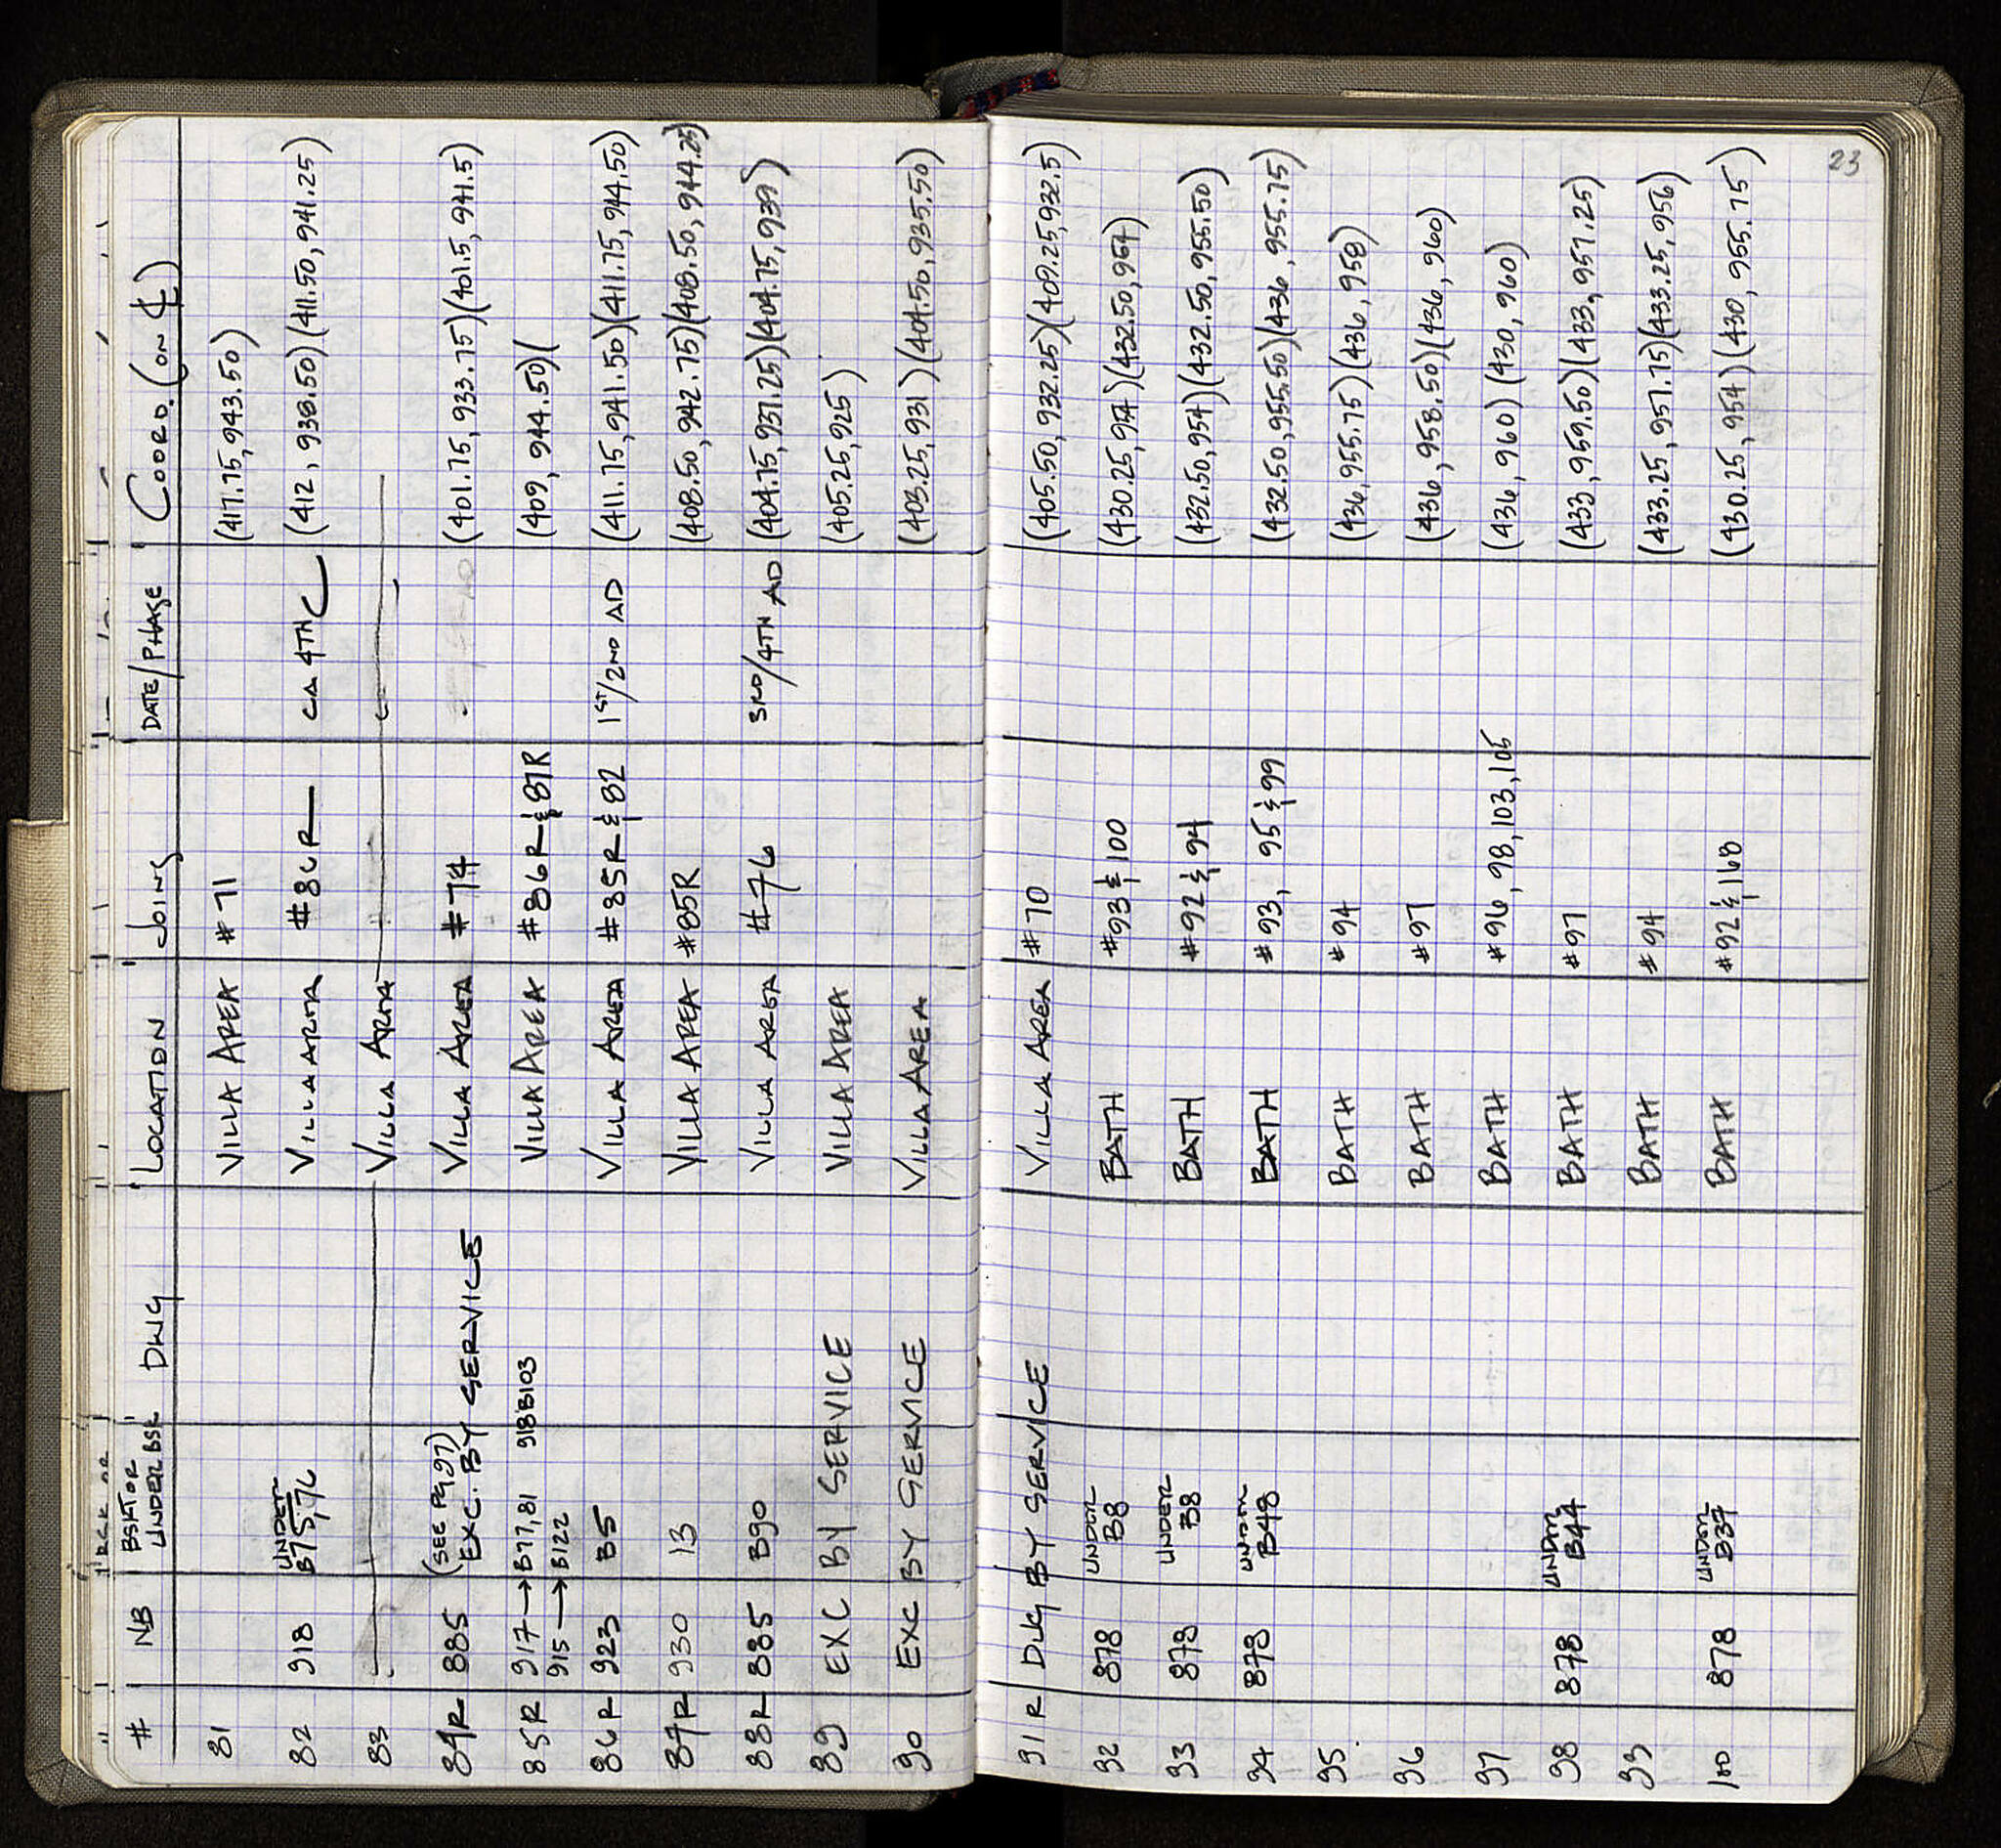 23
# NB BSKT OR UNDER BSK DWG LOCATION JOINS DATE/PHASE COORD. (ON ℄)
81 VILLA AREA #71 (417.75, 943.50)
82 918 UNDER B75, 76 VILLA AREA #86R CA 4TH C (412, 938.50)(411.50, 941.25)
83 VILLA AREA
84R 885 (SEE PG 97) EXC. BY SERVICE VILLA AREA #74 (401.75, 933.75)(401.5, 941.5)
85R 917→B77,81 918B103 VILLA AREA #86R & 87R (409, 944.50)(
915→B122
86R 923 B5 VILLA AREA #85R & 82 1ST/2ND AD (411.75, 941.50)(411.75, 944.50)
87R 930 13 VILLA AREA #85R (408.50, 942.75)(408.50, 944.25)
88R 885 B90 VILLA AREA #76 3RD/4TH AD (404.75, 937.25)(404.75, 939)
89 EXC BY SERVICE VILLA AREA (405.25, 925)
90 EXC BY SERVICE VILLA AREA (403.25, 931)(404.50, 935.50)
91R DUG BY SERVICE VILLA AREA #70 (405.50, 932.25)(409.25, 932.5)
92 878 UNDER B8 BATH #93 & 100 (430.25, 954)(432.50, 954)
93 878 UNDER B8 BATH #92 & 94 (432.50, 954)(432.50, 955.50)
94 878 UNDER B48 BATH #93, 95 & 99 (432.50, 955.50)(436, 955.75)
95 BATH #94 (436, 955.75)(436, 958)
96 BATH #97 (436, 958.50)(436, 960)
97 BATH #96, 98, 103, 105 (436, 960)(430, 960)
98 878 UNDER B44 BATH #97 (433, 959.50)(433, 957.25)
99 BATH #94 (433.25, 957.75)(433.25, 956)
100 878 UNDER B37 BATH #92 & 168 (430.25, 954)(430, 955.75)